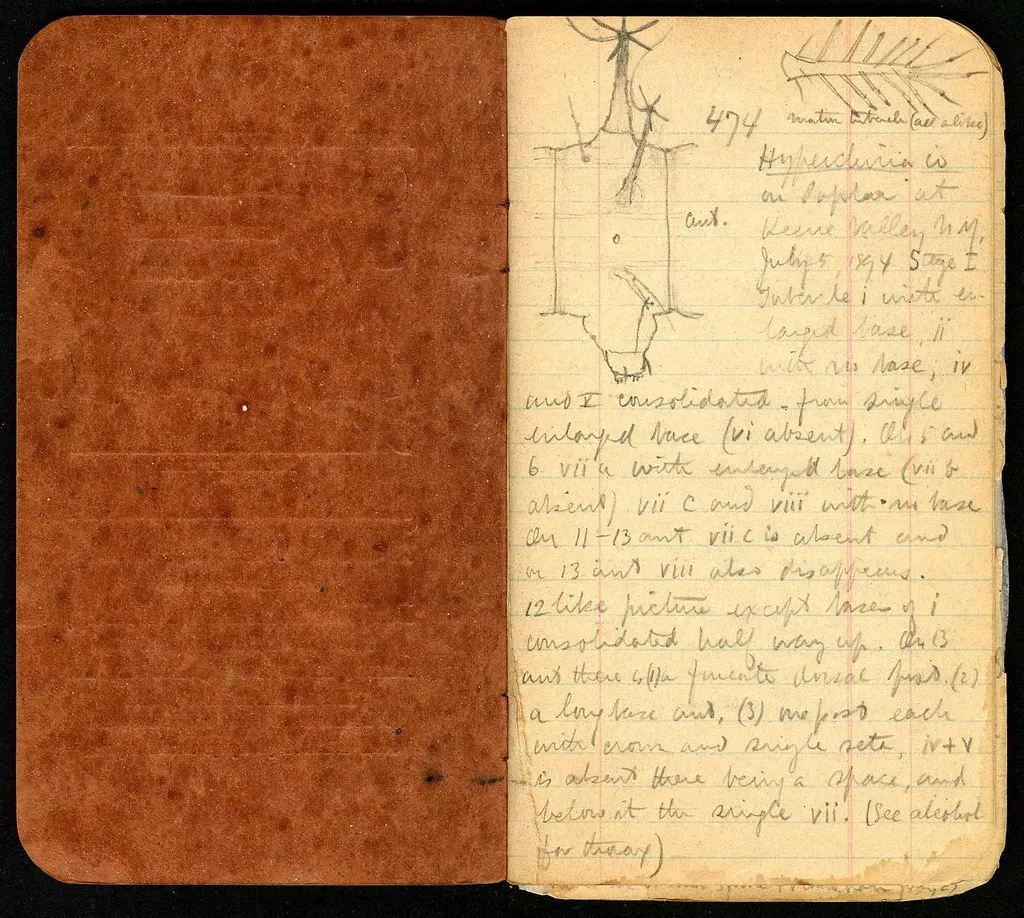 474
matur tubercle (all alike)
Hyperchiria io
on Poplar at
Keene Valley N.Y.
July 5, 1894 Stage I
ant.
Tubercle i with en-
larged base, ii
with no base, iv
and V consolidated from single
enlarged base (vi absent). On 5 and
6 vii a with enlarged base (vii b
absent) vii c and viii with no base
On 11-13 ant vii c is absent and
on 13 ant viii also disappears.
12 like picture except bases of i
consolidated half way up. On 13
ant there is (1) a furcate dorsal post. (2)
a long base ant, (3) one post each
with crown and single seta, iv+V
is absent there being a space, and
below it the single vii. (See alcohol
for thorax)